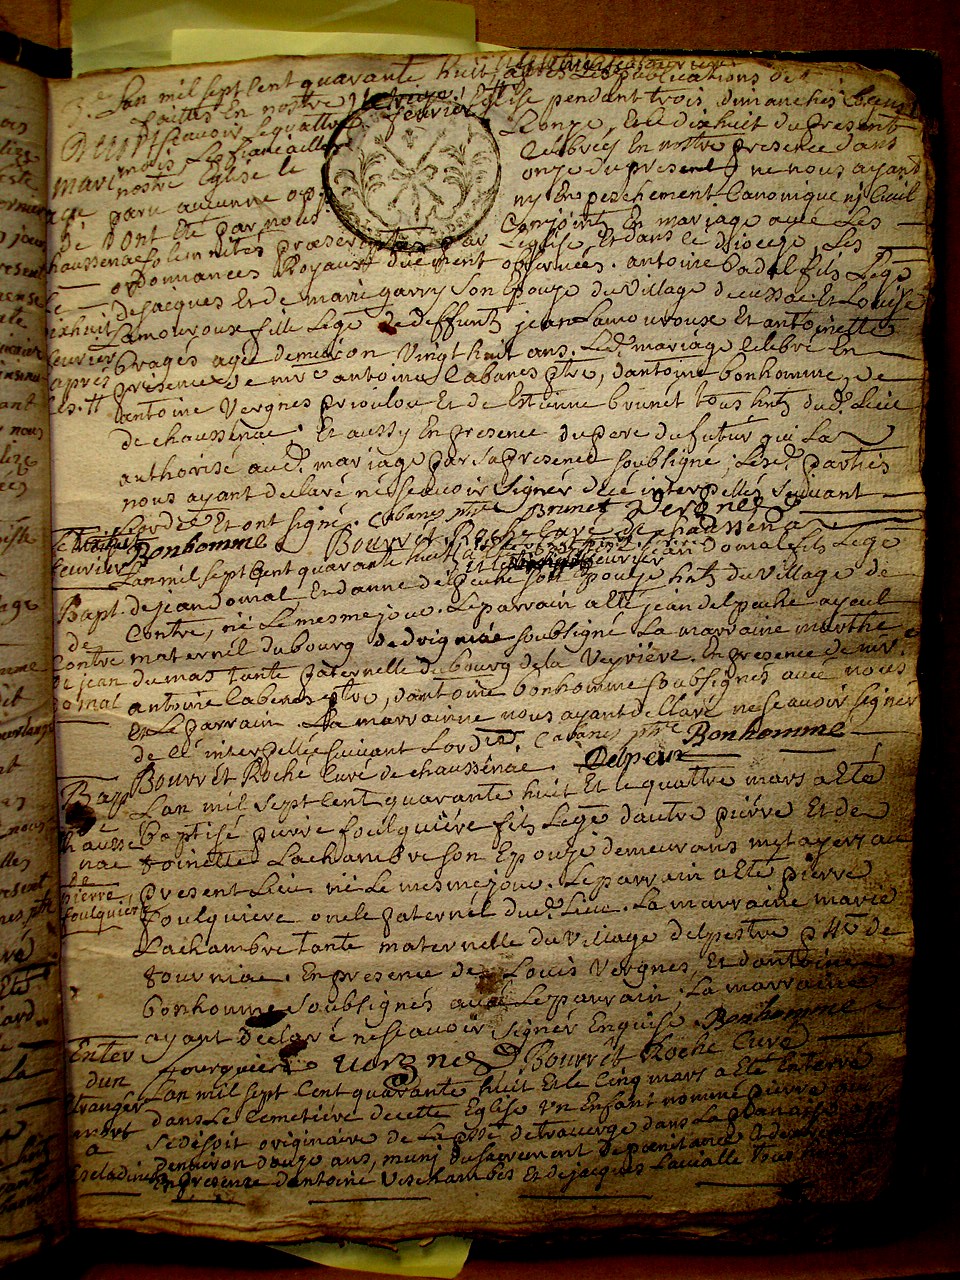 L'an mil sept cent quarante huit, après les publications de
faittes en notre Eglise pendant trois dimanches
scavoir le quattre fevrier l'onze, et le dixhuit du present
mois les fiancailles celebrées en notre presence dans
nostre Eglise le onze du present ne nous ayant
paru aucune opp ny empeschement canonique ny civil
ont eté par nous conjoints en mariage avec les
solemnités præscrites par l'eglise, et dans le diocese, les
ordonnances Royaux duement observées. antoine Vadal fils legé
de jacques et de marie garry son epouze du village decussac et Louise
Lamouroux fille legé de deffunt jean Lamouroux et antoinette
bragés agée denviron vingt huit ans. Led. mariage celebré en
presence de mre antoine Cabanes ptre, dantoine bonhomme, de
antoine Vergnes prioulou et de Estienne brunet tous hnts dud. Lieu
de chaussenac. Et aussy en presence du pere du futur qui La
authorisé aud. mariage par sa presence soubsigné; Lesd. parties
nous ayant declaré ne scavoir signer de ce interpellés suivant
Lord.ce Et ont signé. Cabanes ptre Brunet Vergnes
Bonhomme Bourret Roche Curé de chaussenac
L'an mil sept cent quarante huit jean domal fils legé
de jean domal et danne delpeuch son epouze hnts du village de
Contre, né le mesme jour. Le parrain a eté jean delpeuche ayeul
maternel du bourg de drigniac soubsigné La marraine marthe
dumas tante paternelle du bourg de la Veyriere. En presence de mr.
antoine Cabanes ptre, dantoine bonhomme soubsignés avec nous
et le parrain. La marrainne nous ayant declaré ne scavoir signer
de ce interpellée suivant Lord.ce. Cabanes ptre Bonhomme
Bourret Roche Curé de chaussenac. Delpeux
L'an mil sept cent quarante huit et le quattre mars a eté
baptisé pierre foulquiére fils legé dautre pierre et de
toinette Lachambre son epouze demeurans metayers au
present Lieu né le mesme jour. Le parrain a eté pierre
foulquiere oncle paternel dud. Lieu. La marraine marie
Lachambre tante maternelle du village delpestre psse de
tourniac. En presence de Louis Vergnes, et dantoine
bonhomme soubsignés avec Le parrain; La marraine
ayant declaré ne scavoir signer Enquise. Bonhomme
fourquiere vergnes Bourret Roche Curé
L'an mil sept cent quarante huit et le cinq mars a eté Enterré
dans Le Cemetiere de cette Eglise un Enfant nommé pierre
se desoit originaire de La psse de trauerge dans La planaise
denviron douze ans, muni du sacrement de pænitance
En presence dantoine Vieschambes et de jacques Lavialle tous
Mari
age
de
chaussenac
Le
dixhuit
fevrier
après
Le
fevrier
Bapt.
de
Contre
de jean
domal
Bapt
de
chausse
nac
pierre
foulquiere
Enter
dun
Etranger
mort
a
Escladines